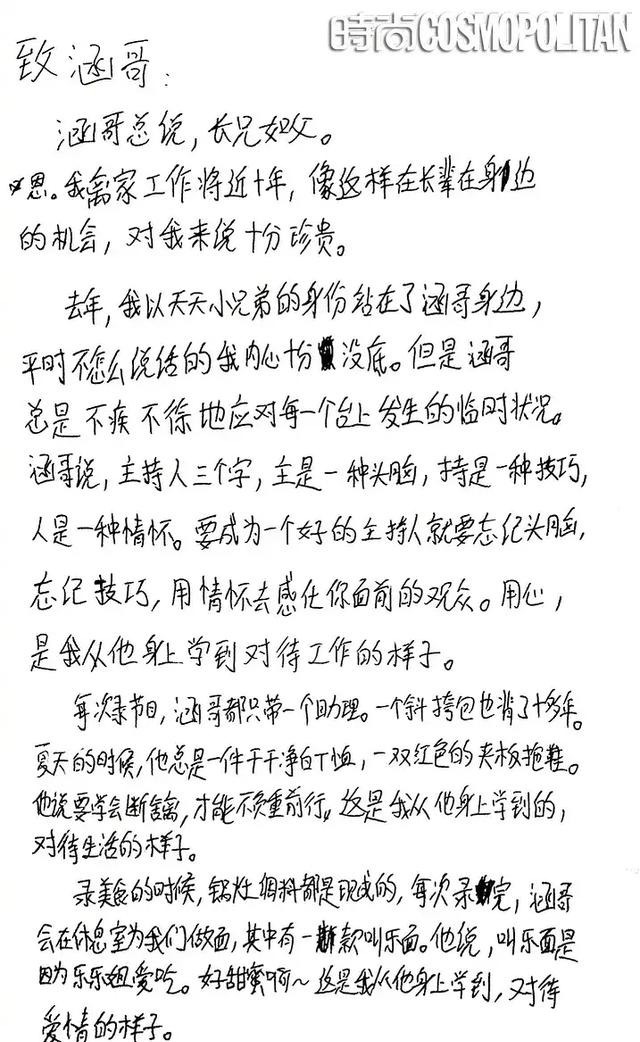 時尚COSMOPOLITAN
致涵哥：
涵哥总说，长兄如父。
恩。我离家工作将近十年，像这样在长辈在身边
的机会，对我来说十分珍贵。
去年，我以天天小兄弟的身份站在了涵哥身边，
平时不怎么说话的我内心十分没底。但是涵哥
总是不疾不徐地应对每一个台上发生的临时状况。
涵哥说，主持人三个字，主是一种头脑，持是一种技巧，
人是一种情怀。要成为一个好的主持人就要忘记头脑，
忘记技巧，用情怀去感化你面前的观众。用心，
是我从他身上学到对待工作的样子。
每次录节目，涵哥都只带一个助理。一个斜挎包也背了十多年。
夏天的时候，他总是一件干干净白T恤，一双红色的夹板拖鞋。
他说要学会断舍离，才能不负重前行。这是我从他身上学到的，
对待生活的样子。
录美食的时候，锅灶调料都是现成的，每次录完，涵哥
会在休息室为我们做面，其中有一款叫乐面。他说，叫乐面是
因为乐乐姐爱吃。好甜蜜啊～这是我从他身上学到，对待
爱情的样子。